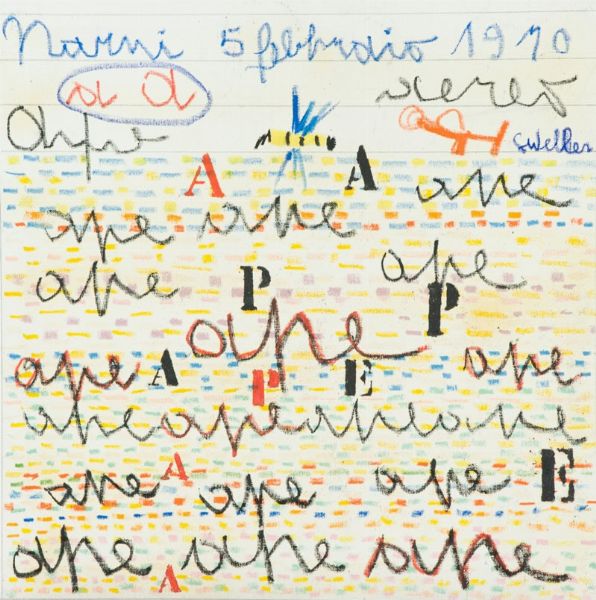 Narni 5 febbraio 1910
a a aereo
Ape
A A ape
ape ape
ape P ape P
ape
ape A P E ape
apeapeapeape
A
ape ape ape E
ape ape ape
A